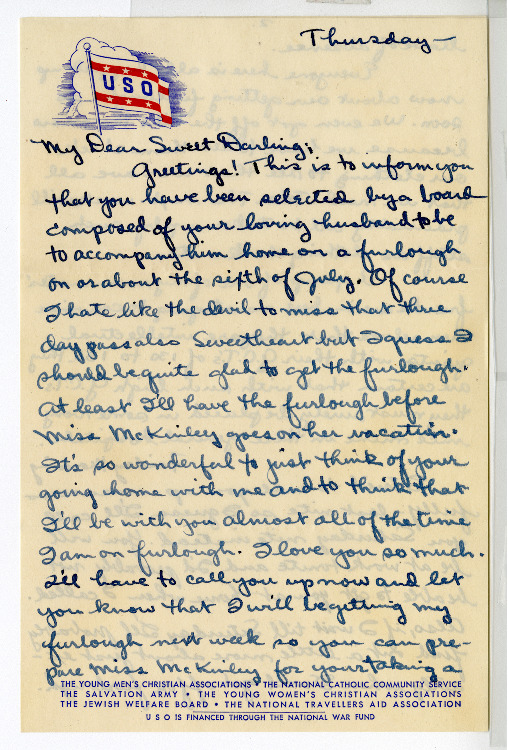 Thursday—
USO
My Dear Sweet Darling;
Greetings! This is to inform you
that you have been selected by a board
composed of your loving husband to be
to accompany him home on a furlough
on or about the sixth of July. Of course
I hate like the devil to miss that three
day pass also Sweetheart but I guess I
should be quite glad to get the furlough.
At least I'll have the furlough before
Miss McKinley goes on her vacation.
It's so wonderful to just think of your
going home with me and to think that
I'll be with you almost all of the time
I am on furlough. I love you so much.
I'll have to call you up now and let
you know that I will be getting my
furlough next week so you can pre-
pare Miss McKinley for your taking a
THE YOUNG MEN'S CHRISTIAN ASSOCIATIONS • THE NATIONAL CATHOLIC COMMUNITY SERVICE
THE SALVATION ARMY • THE YOUNG WOMEN'S CHRISTIAN ASSOCIATIONS
THE JEWISH WELFARE BOARD • THE NATIONAL TRAVELLERS AID ASSOCIATION
USO IS FINANCED THROUGH THE NATIONAL WAR FUND